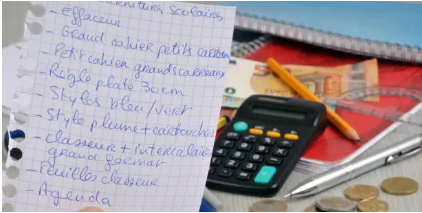 fournitures scolaires
- effaceur
- Grand cahier petits carreaux
- Petit cahier grands carreaux
- Règle plate 30cm
- Stylos bleu/vert
- Stylo plume + cartouches
- classeur + intercalaire
grand format
- Feuilles classeur
- Agenda